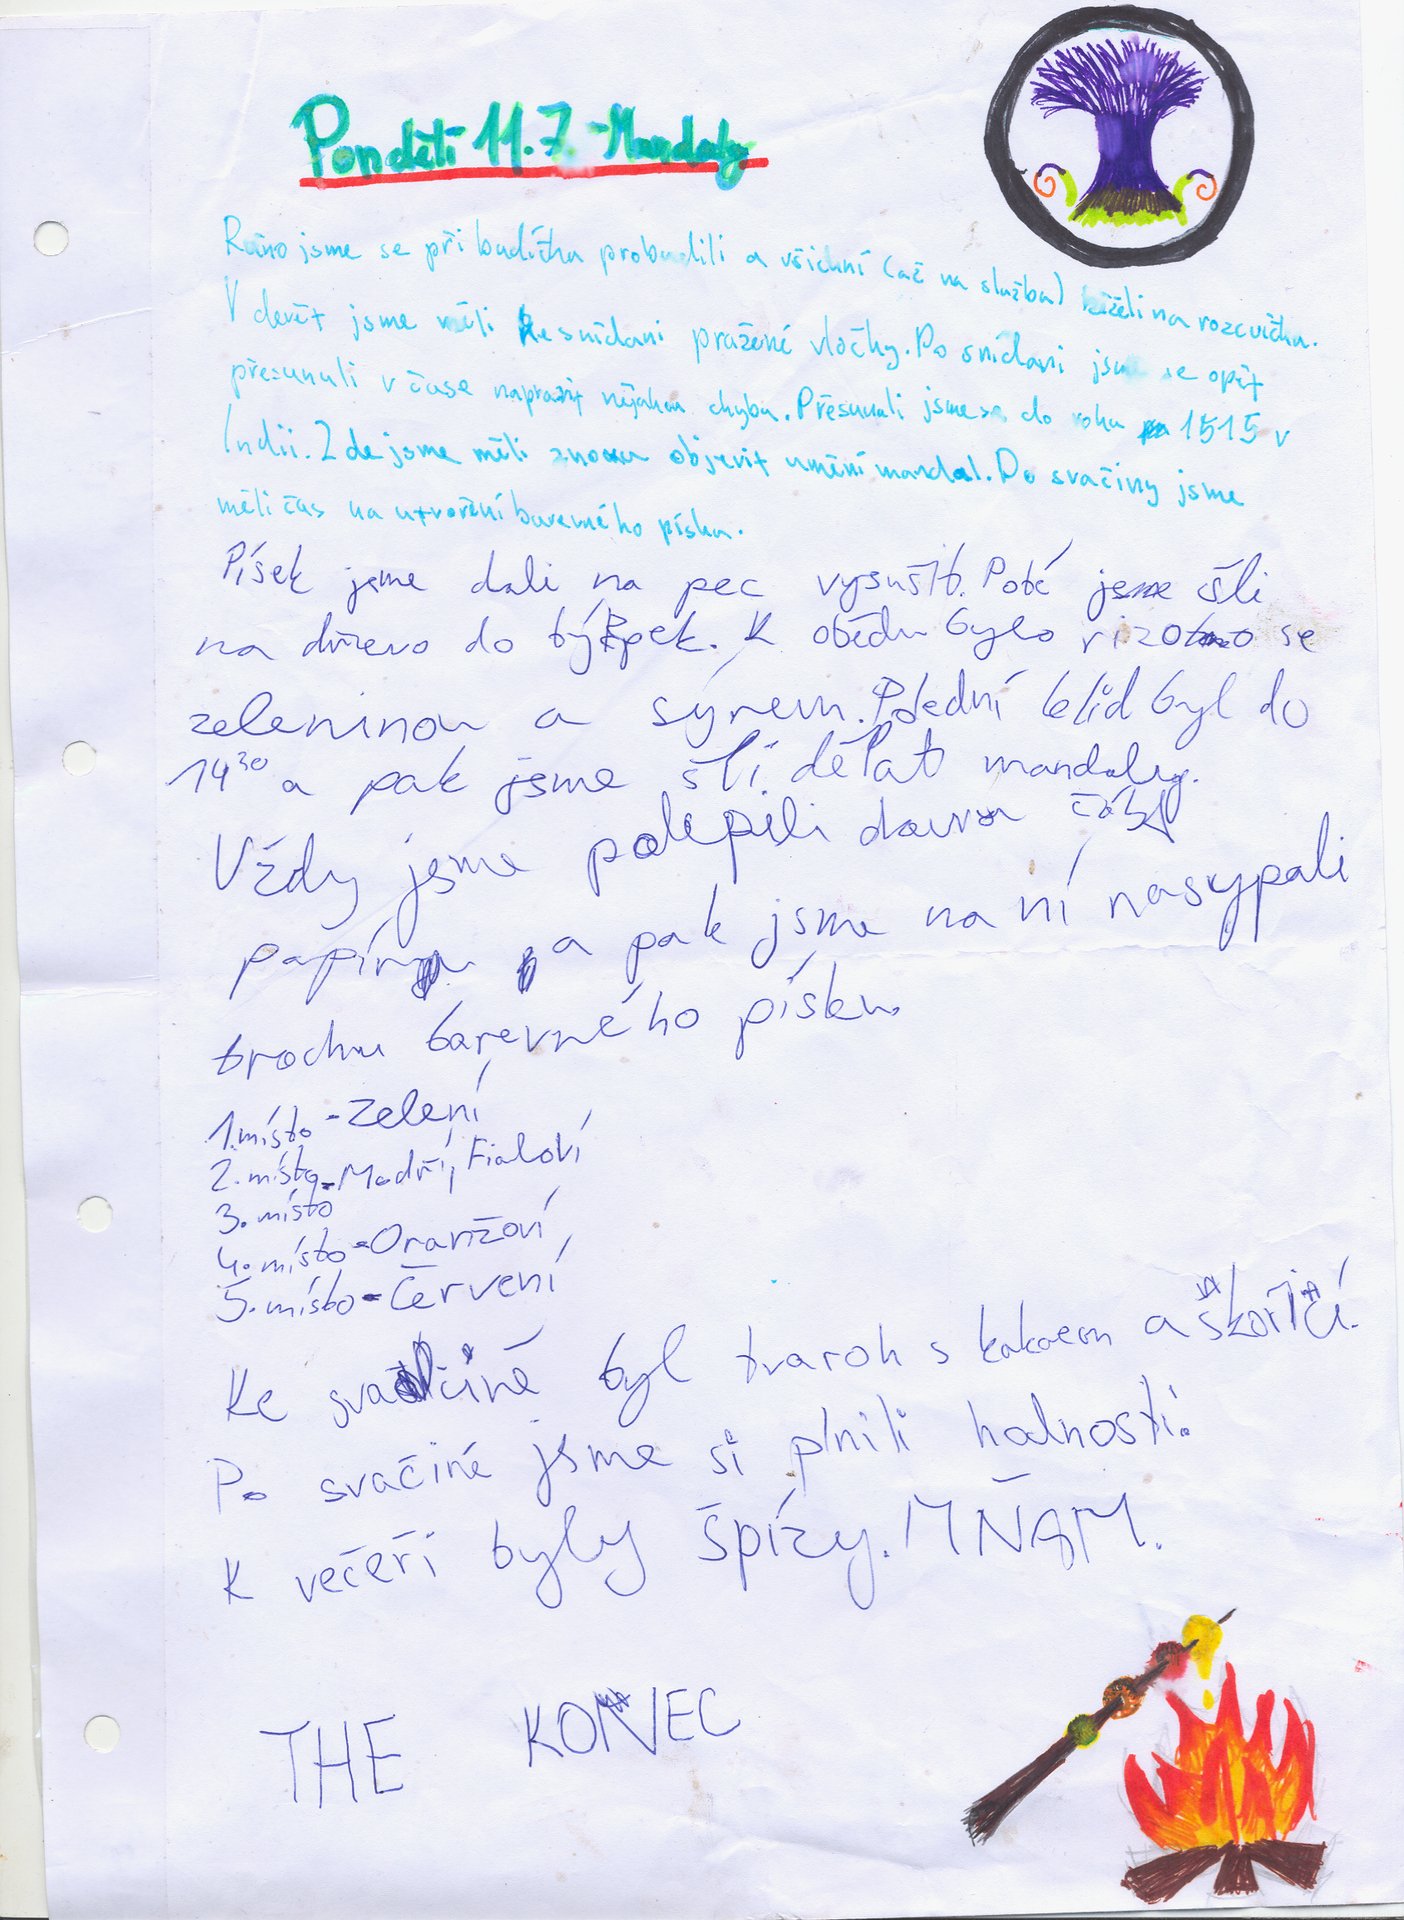 Pondělí 11.7. - Mandaly
Ráno jsme se při budíčku probudili a všichni (až na službu) běželi na rozcvičku.
V devět jsme měli ke snídani pražené vločky. Po snídani jsme se opět
přesunuli v čase napravit nějakou chybu. Přesunuli jsme se do roku 1515 v
Indii. Zde jsme měli znovu objevit umění mandal. Do svačiny jsme
měli čas na utvoření barevného písku.
Písek jsme dali na pec vysušit. Poté jsme šli
na dřevo do týpek. K obědu bylo rizoto se
zeleninou a sýrem. Polední klid byl do
14³⁰ a pak jsme šli dělat mandaly.
Vždy jsme polepili danou část
papíru a pak jsme na ní nasypali
trochu barevného písku.
1. místo - Zelení
2. místo - Modří, Fialoví
3. místo
4. místo - Oranžoví
5. místo - Červení
Ke svačině byl tvaroh s kakaem a skořicí.
Po svačině jsme si plnili hodnosti.
K večeři byly špízy. MŇAM.
THE KONEC